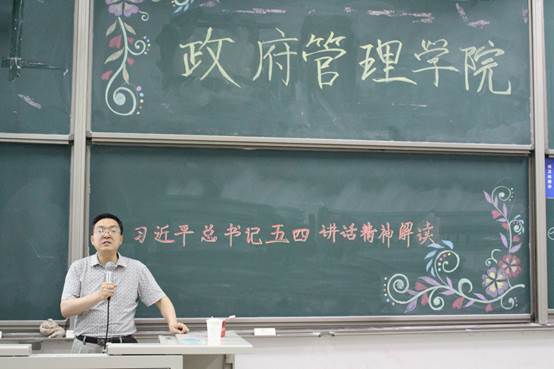 政府管理学院
习近平总书记五四讲话精神解读